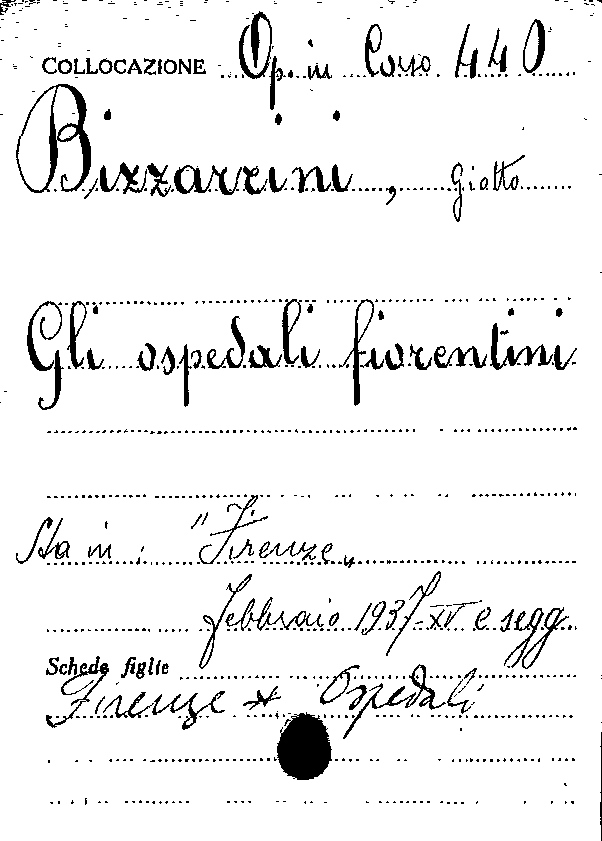 COLLOCAZIONE Op. in Corso 440
Bizzarrini, Giotto
Gli ospedali fiorentini
Sta in: "Firenze„
febbraio 1937-XV e segg.
Schede figlie
Firenze * Ospedali